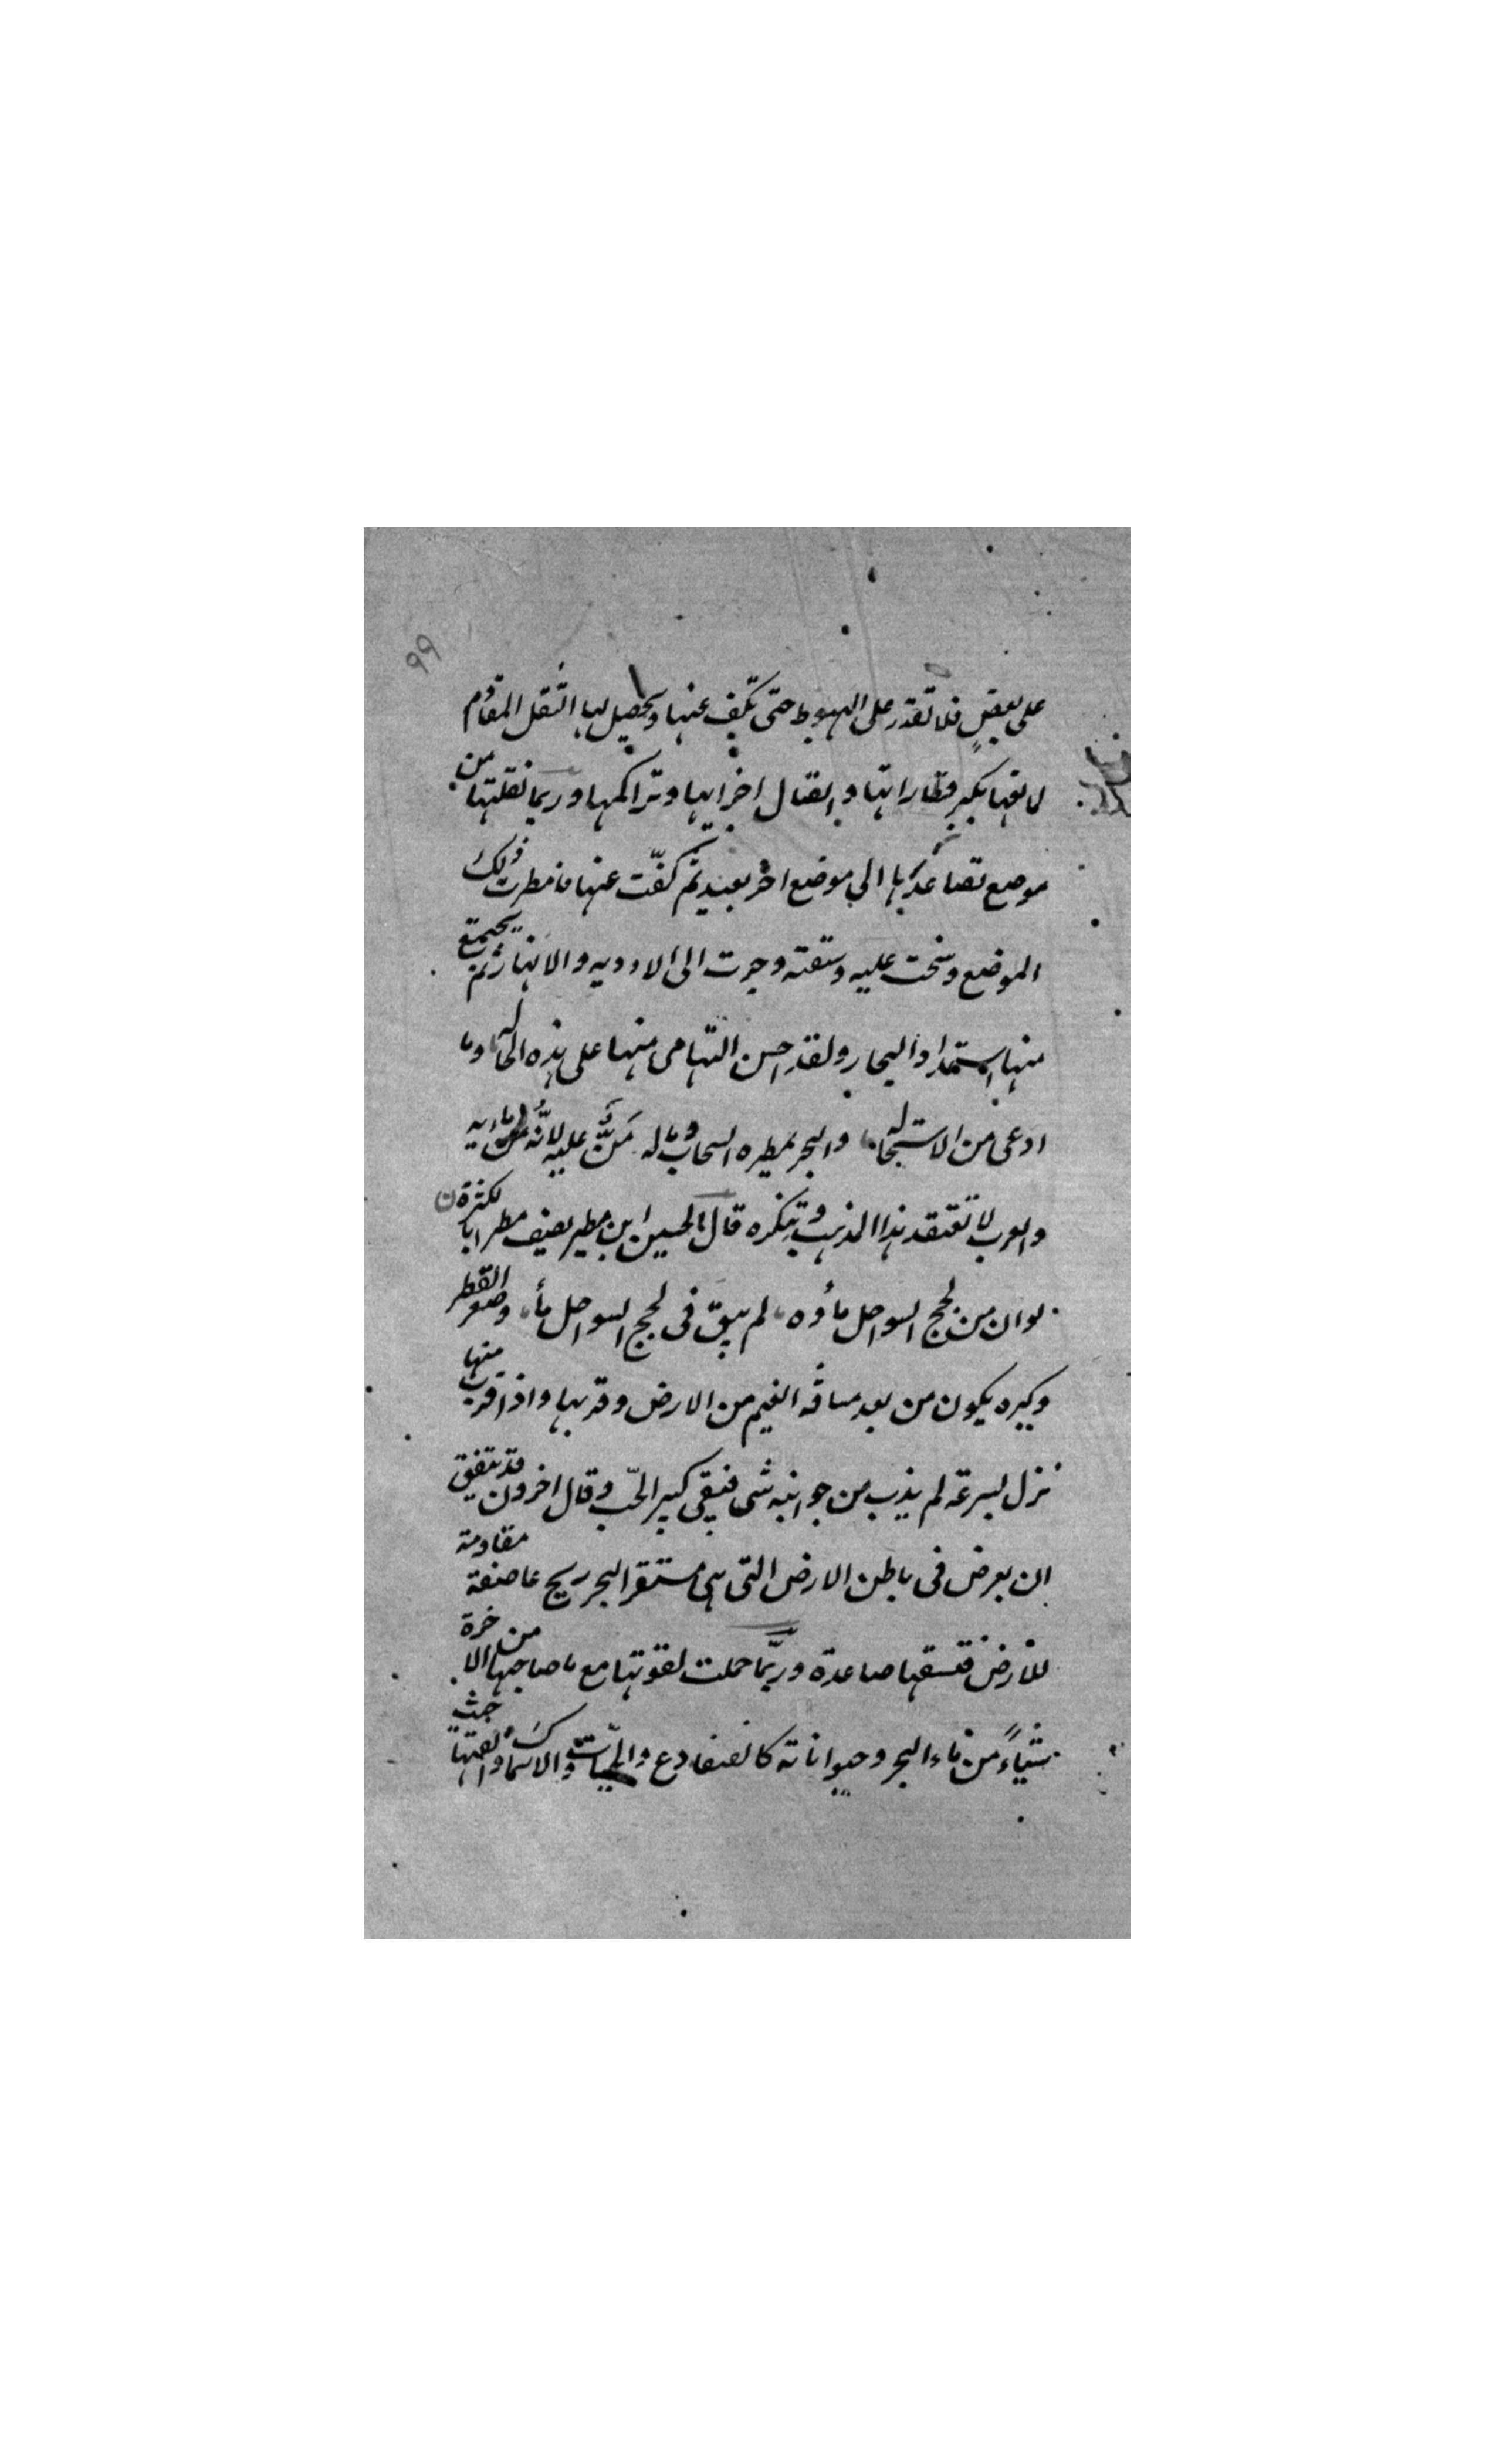 ٩٩
على بعضٍ فلا تقدر على الهبوط حتى تكف عنها ويحصل لها الثقل المقاوم
لمانعها بكبر قطاراتها واتصال اجزايها وتراكمها وربما نقلتها من
موضع تصاعدها الى موضع اخر بعيد ثم كفّت عنها فامطرت ذلك
الموضع وسحت عليه وسقته وجرت الى الاودية والانهار ثم يجتمع
منها استمداد البحار ولقد احسن التهامى منها على هذه الحالة وما
ادعى من الاستحالة والبحر يمطره السحاب وما له مَنٌّ عليه لانّه من مايه
والعرب لا تعتقد هذا المذهب وتنكره قال الحسين ابن مطير يصف مطرا بالكثرة
لو ان من لجج السواحل مأوه لم يبق فى لجج السواحل مأء وصغر القطر
وكبره يكون من بعد مسافة الغيم من الارض وقربها واذا قرب منها
نزل بسرعة لم يذب من جوانبه شى فيبقى كبير الحّب وقال اخرون قد يتفق
ان يعرض فى باطن الارض التى هى مستقر البحر ريح عاصفة مقاومة
للأرض فتسقها صاعدة وربّما حملت لقوتها مع ما صاحبها من الاخرة
شياءً من ماء البحر وحيواناته كالضفادع والحيّات والاسماك والقتها جثث